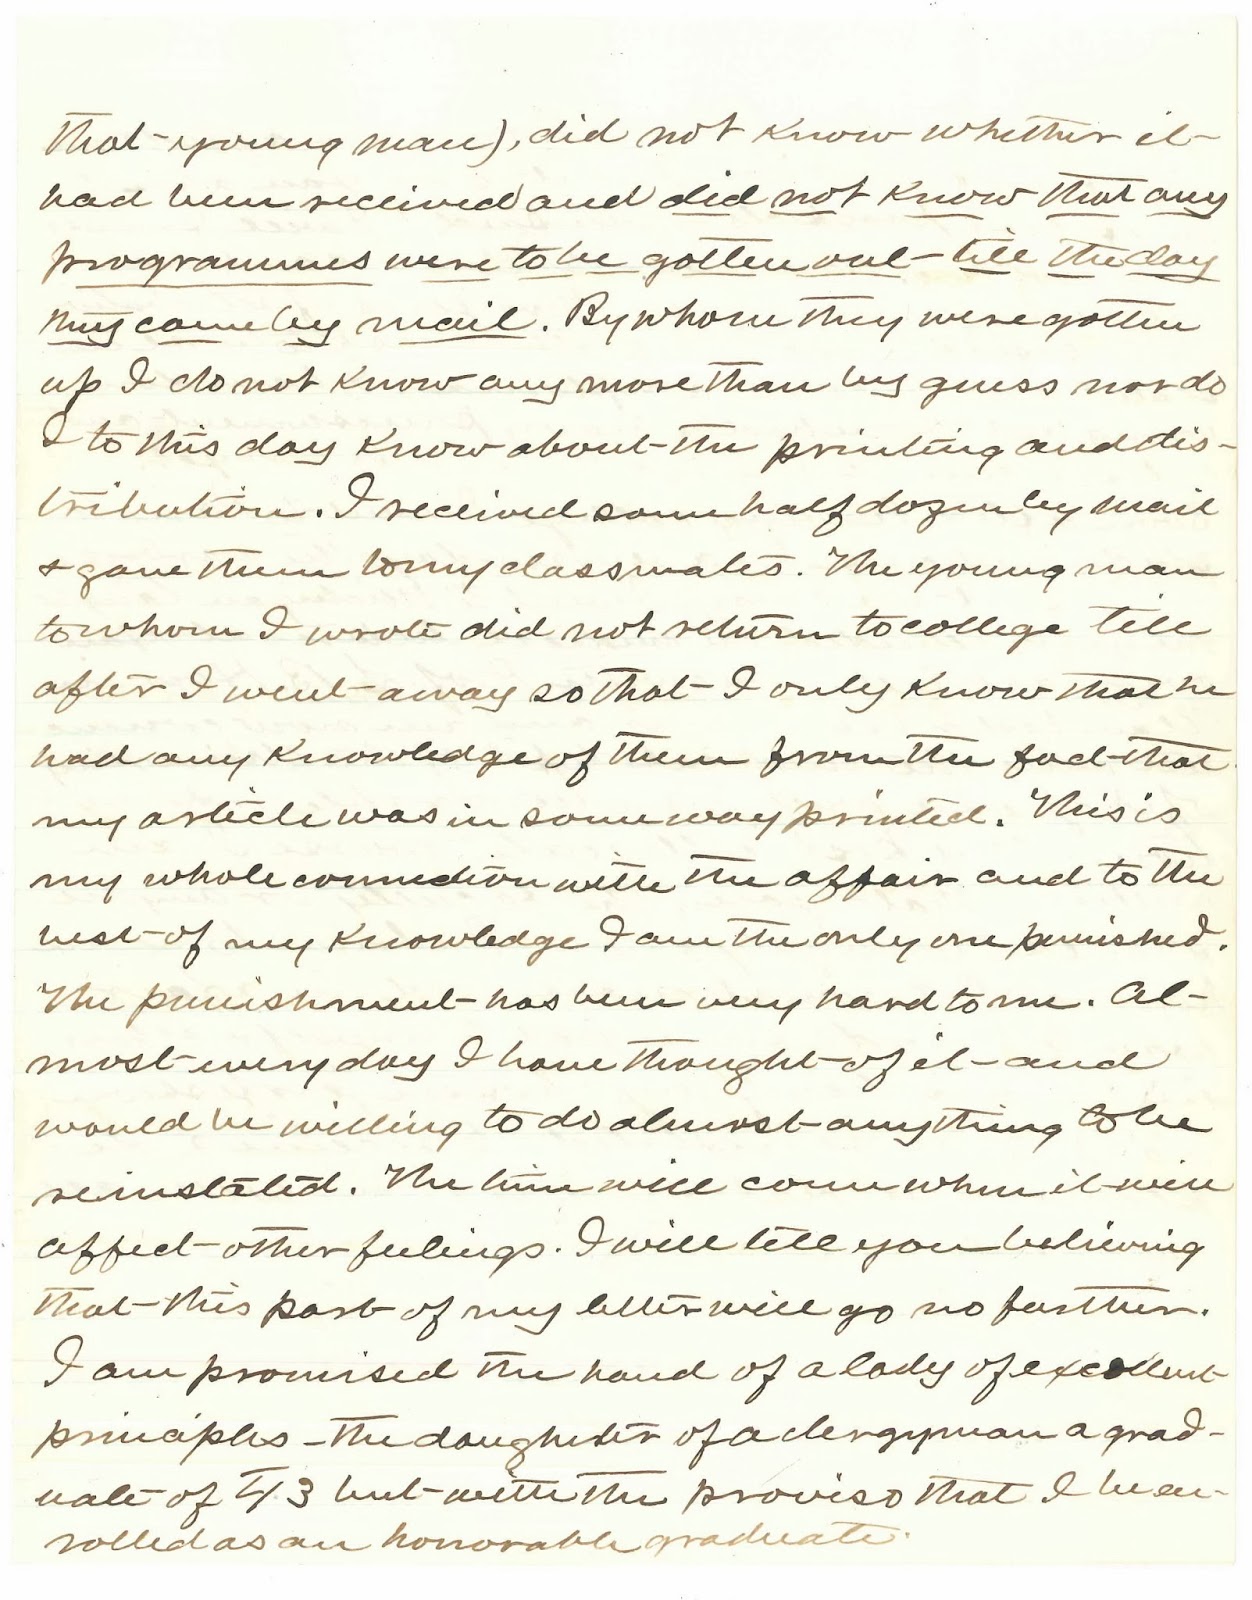 that young man), did not know whether it
had been received and did not know that any
programmes were to be gotten out till the day
they came by mail. By whom they were gotten
up I do not know any more than by guess nor do
I to this day know about the printing and dis-
tribution. I received some half dozen by mail
& gave them to my classmates. The young man
to whom I wrote did not return to college till
after I went away so that I only know that he
had any knowledge of them from the fact that
my article was in some way printed. This is
my whole connection with the affair and to the
best of my knowledge I am the only one punished.
The punishment has been very hard to me. Al-
most every day I have thought of it and
would be willing to do almost anything to be
reinstated. The time will come when it will
affect other feelings. I will tell you believing
that this part of my letter will go no further.
I am promised the hand of a lady of excellent
principles - the daughter of a clergyman a grad-
uate of '43 but with the proviso that I be en-
rolled as an honorable graduate.